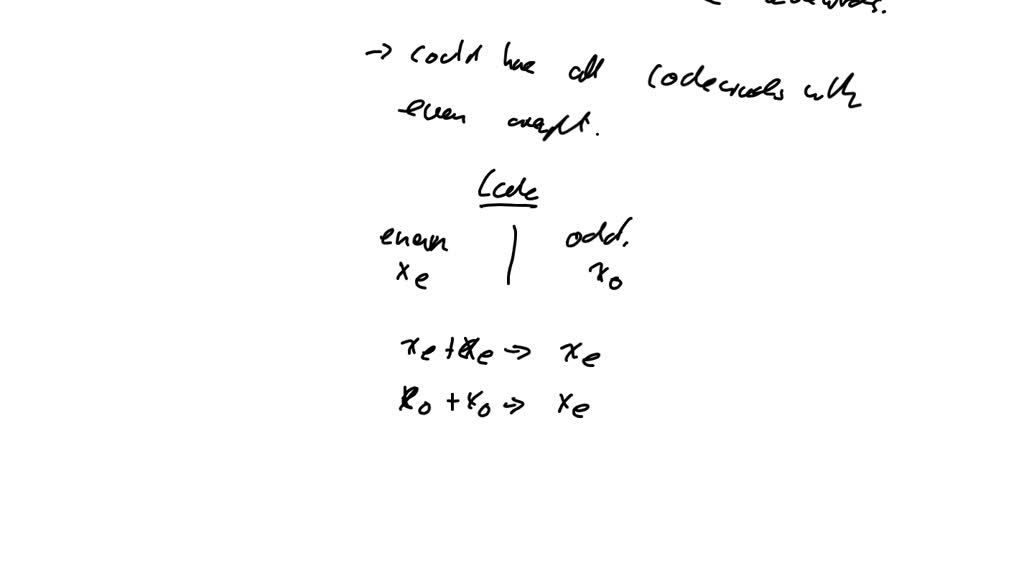 → could have all codewords with
even weight.
Code
even | odd.
xe | xo
xe + xe → xe
xo + xo → xe